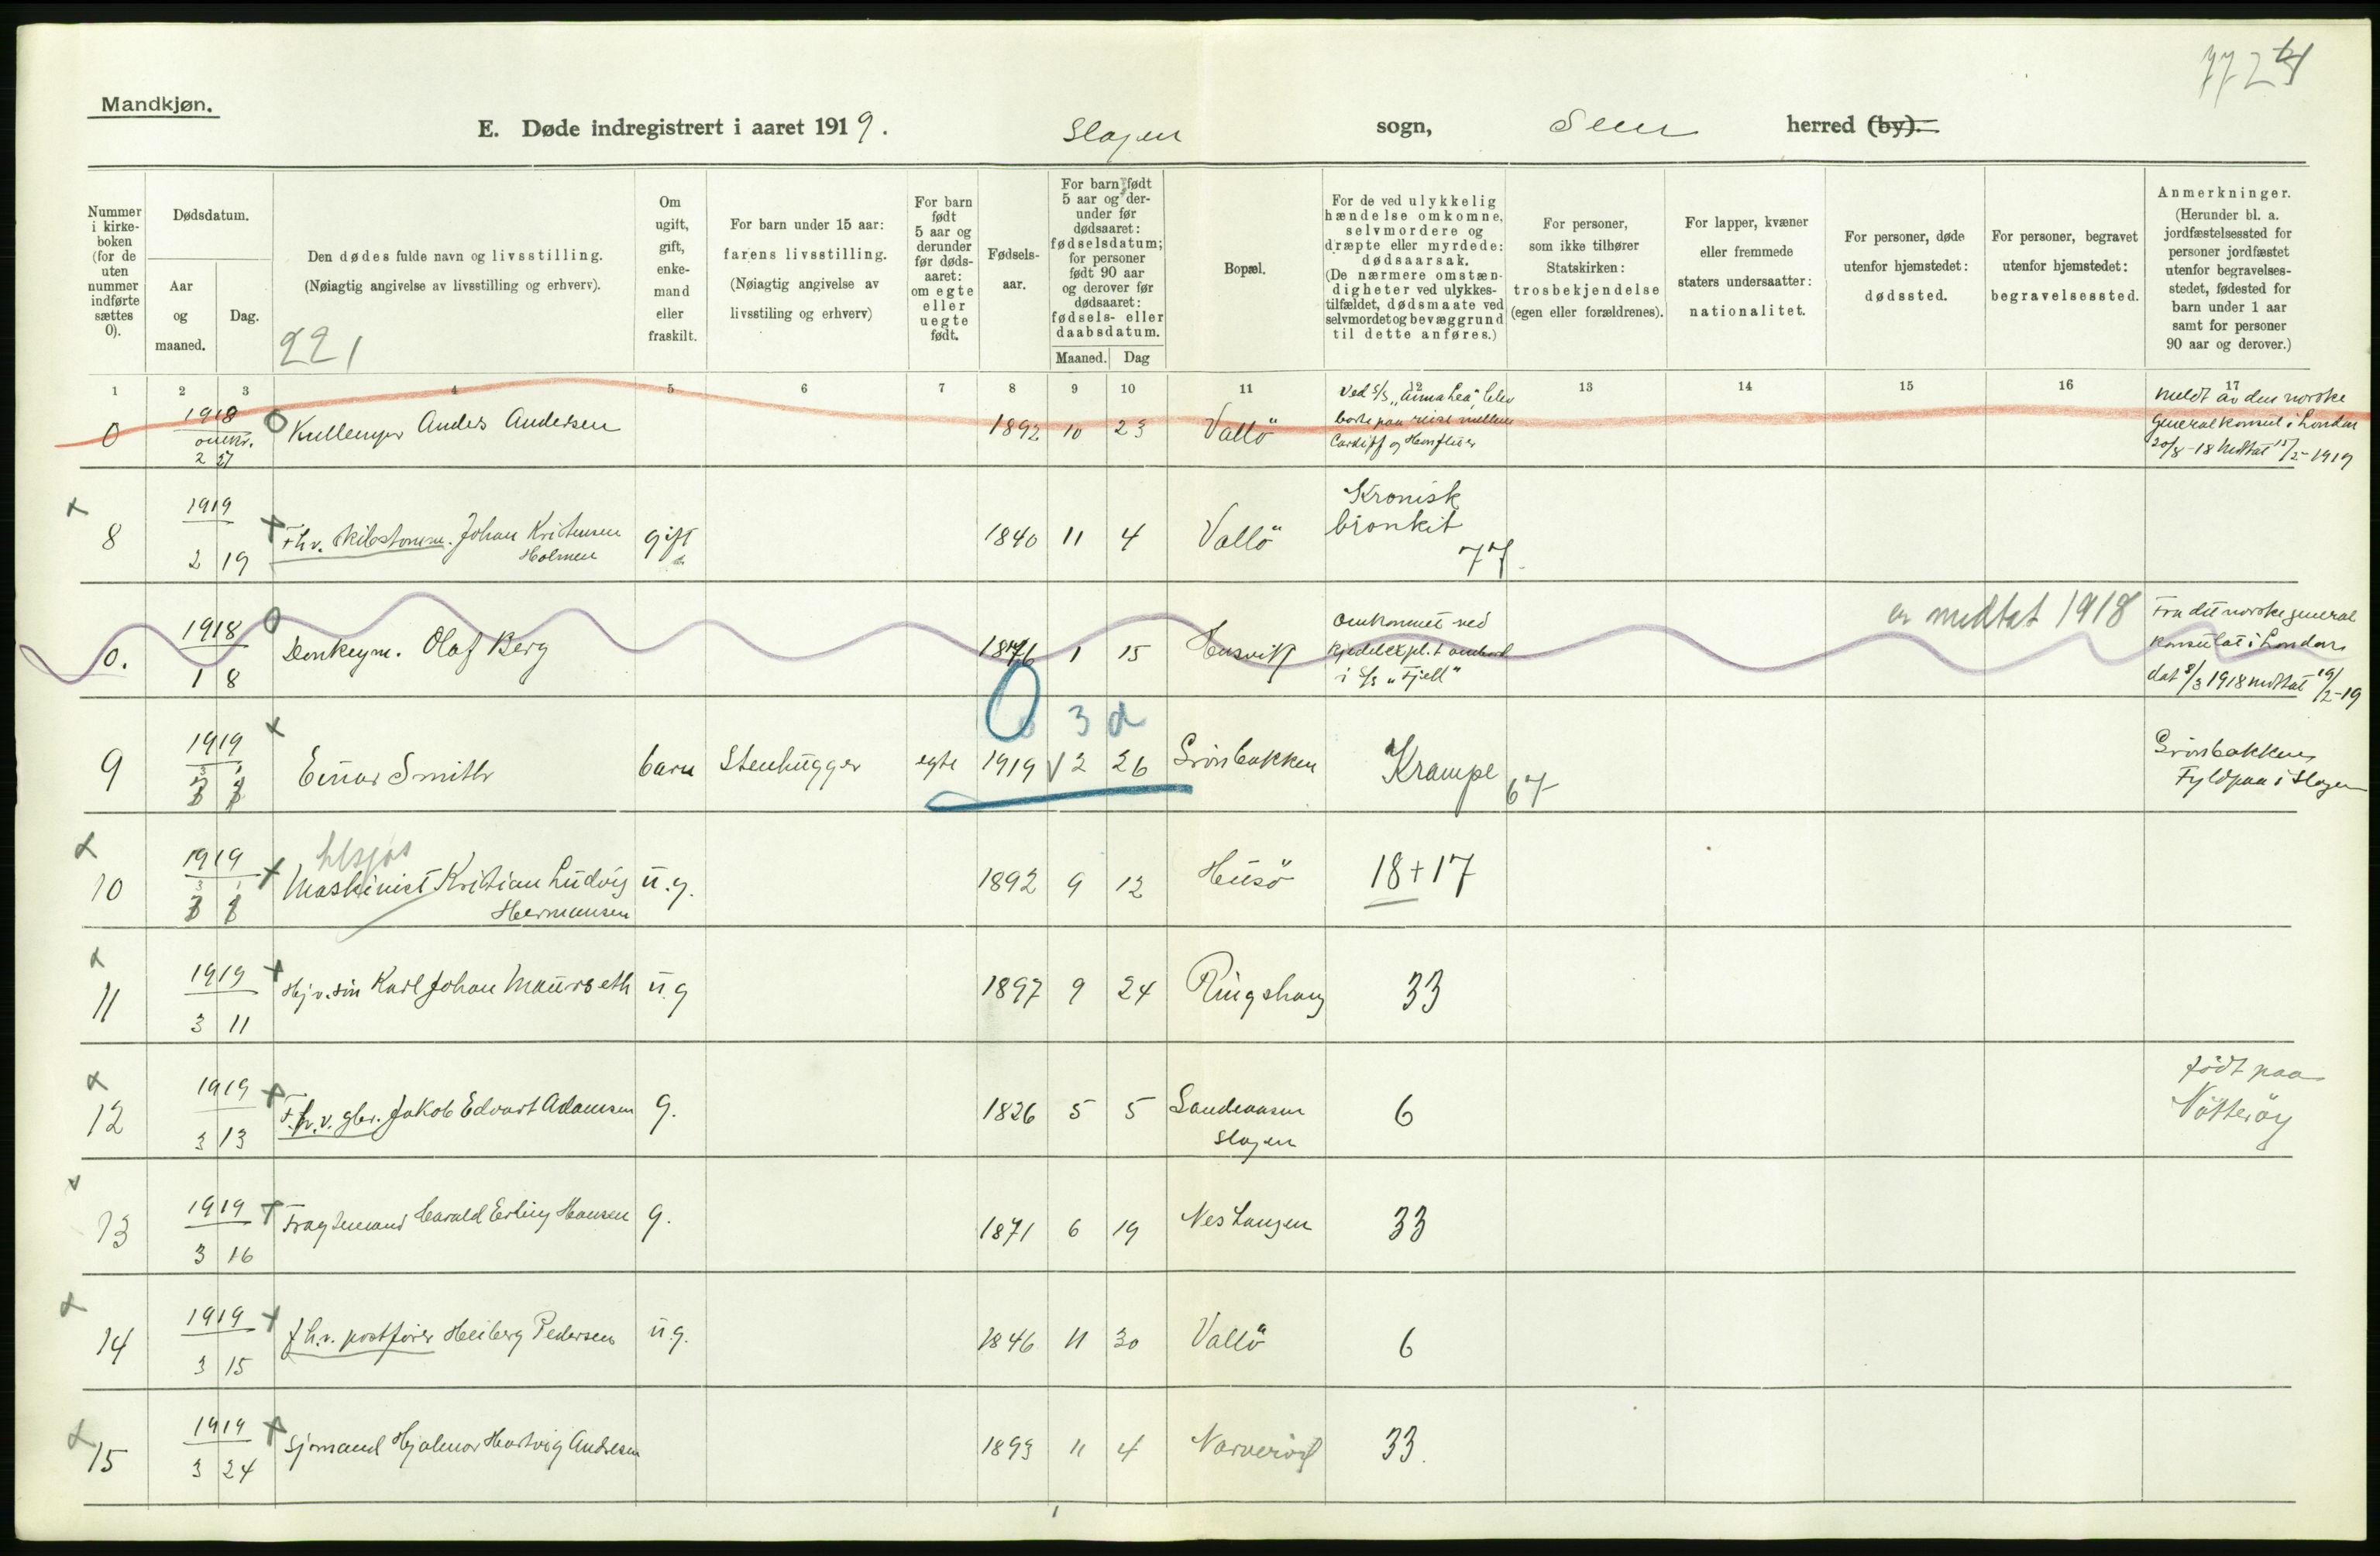 Mandkjøn.
E. Døde indregistrert i aaret 1919. Slagen sogn, Sem herred (by).
Nummer i kirkeboken (for de uten nummer indførte sættes 0).
Dødsdatum.
Aar og maaned.
Dag.
Den dødes fulde navn og livsstilling.
(Nøiagtig angivelse av livsstilling og erhverv).
221
Om ugift, gift, enkemand eller fraskilt.
For barn under 15 aar:
farens livsstilling.
(Nøiagtig angivelse av livsstiling og erhverv)
For barn født 5 aar og derunder før dødsaaret: om egte eller uegte født.
Fødselsaar.
For barn født 5 aar og derunder før dødsaaret: fødselsdatum; for personer født 90 aar og derover før dødsaaret: fødsels- eller daabsdatum.
Maaned. Dag
Bopæl.
For de ved ulykkelig hændelse omkomne, selvmordere og dræpte eller myrdede: dødsaarsak. (De nærmere omstændigheter ved ulykkestilfældet, dødsmaate ved selvmordet og bevæggrund til dette anføres.)
For personer, som ikke tilhører Statskirken: trosbekjendelse (egen eller forældrenes).
For lapper, kvæner eller fremmede staters undersaatter: nationalitet.
For personer, døde utenfor hjemstedet: dødssted.
For personer, begravet utenfor hjemstedet: begravelsessted.
Anmerkninger.
(Herunder bl. a. jordfæstelsessted for personer jordfæstet utenfor begravelsesstedet, fødested for barn under 1 aar samt for personer 90 aar og derover.)
1 2 3 4 5 6 7 8 9 10 11 12 13 14 15 16 17
0 1918 omkr. 2 27 Kullemper Anders Andersen 1892 10 23 Vallö Ved S/S "Anna Lea" blev borte paa reise mellem Cardiff og Honfleur meldt av den norske Generalkonsul i London 20/8-18 Mottat 15/2-1919
8 1919 2 19 Fhv. skibstømm. Johan Kristensen Holmen gift 1840 11 4 Vallö Kronisk bronkit 77
0. 1918 1 8 Donkeym. Olaf Berg 1876 1 15 Husvik omkommet ved kjedelexpl. ombord i S/S "Fjell" er medtat 1918 Fra det norske general konsulat i London dat 8/3 1918 mottat 19/2-19
0 3 d
9 1919 3 1 Einar Smith barn Stenhugger egte 1919 2 26 Grönbakken Krampe 67 Grönbakken Fyldpaa i Slagen
10 1919 3 1 Maskinist Kristian Ludvig Hermansen u.g. 1892 9 12 Husö 18+17
11 1919 3 11 Hj.v. sön Karl Johan Maurseth u.g 1897 9 24 Ringshaug 33
12 1919 3 13 F.h.v. gbr. Jakob Edvart Adamsen g. 1826 5 5 Sandeaasen Slagen 6 födt paa Nötteröy
13 1919 3 16 Fragtemand Harald Erling Hansen g. 1871 6 19 Nes Langen 33
14 1919 3 15 fh.v. postfører Heiberg Pedersen u.g. 1846 11 30 Vallö 6
15 1919 3 24 Sjømand Hjalmar Hartvig Andresen 1893 11 4 Narveröd 33.